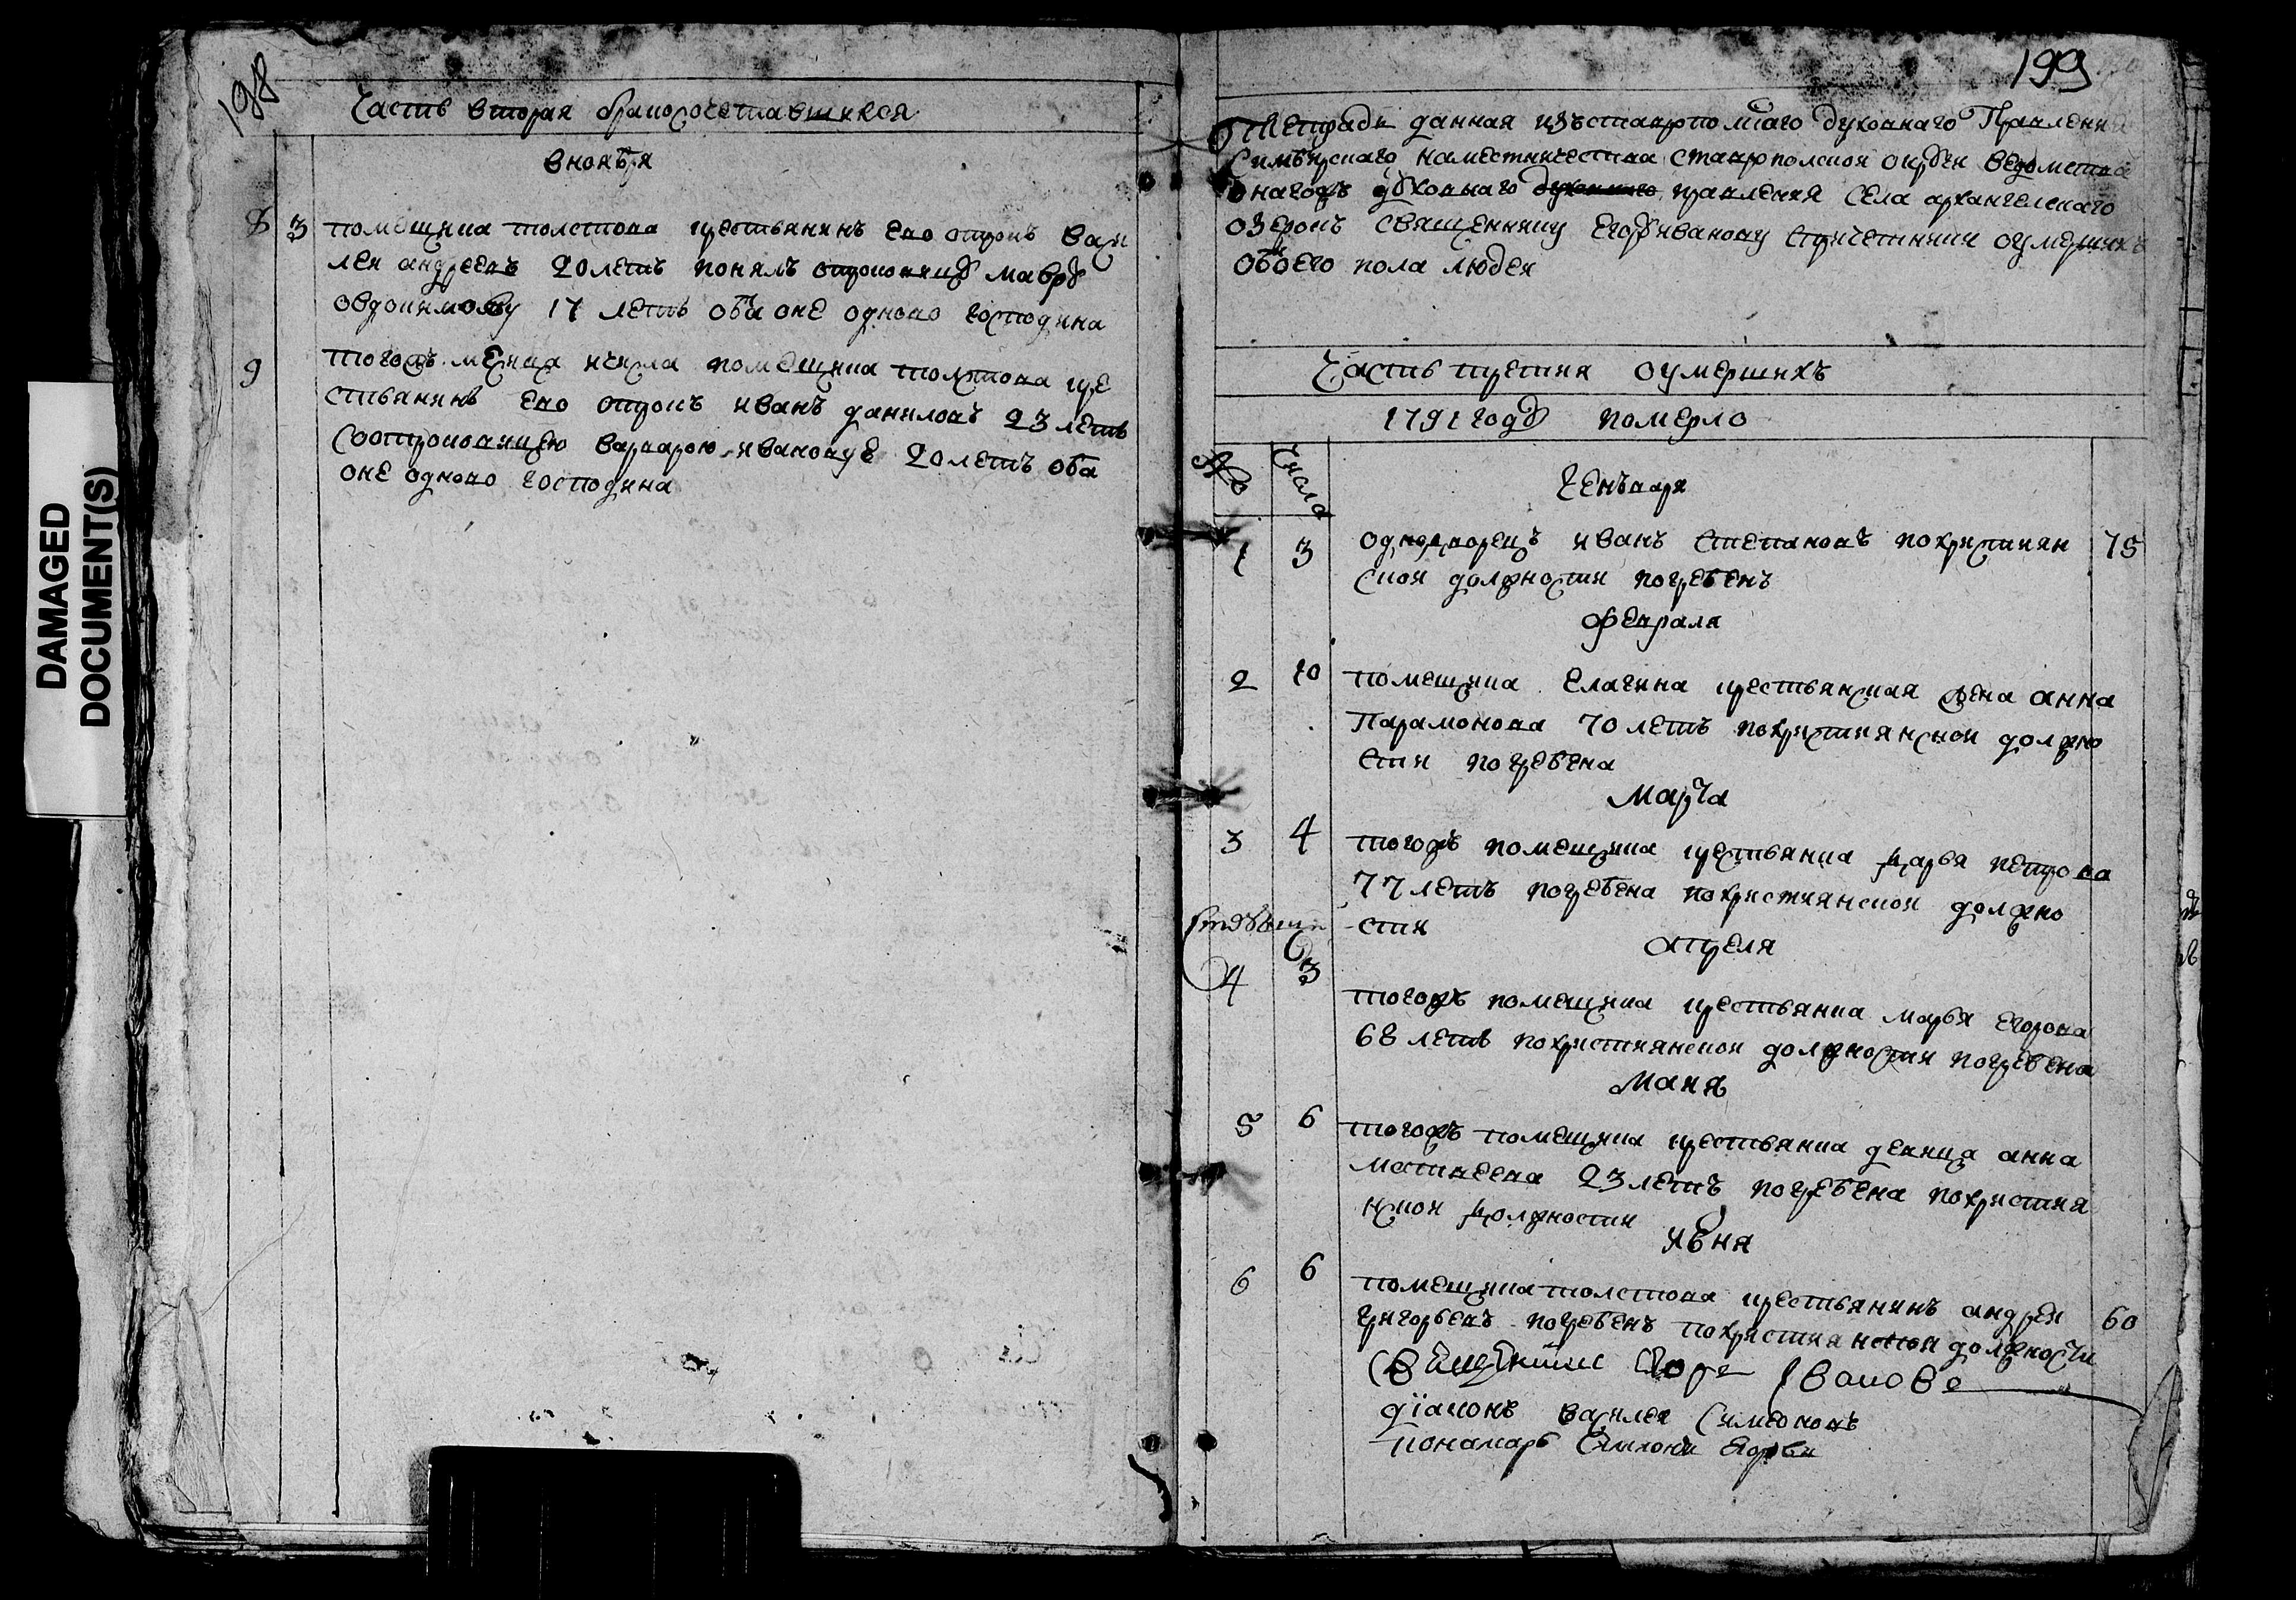 198
Часть вторая бракосочетавшихся
в ноябъря
8 3 помещика толстова крестьянинъ ево отрокъ васи
лей андреевъ 20 летъ понялъ отроковицу мавру
овдокимову 17 летъ оба оне одново господина
9 тогожъ месяца и числа помещика толстова кре
стьянинъ ево отрокъ иванъ даниловъ 23 летъ
соотроковицею варварою ивановуе 20 летъ оба
оне одново господина
DAMAGED
DOCUMENT(S)
199
Тетрадь данная изъ ставропольскаго духовнаго Правления
Симбирскаго наместничества ставрополской округи ведомства
онагожъ духовнаго правления села архангелскаго
озерокъ священнику Егору иванову спричетники о умершихъ
обоего пола людей
Часть третия о умершихъ
1791 году померло
№ Числа
Генъваря
1 3 однодворецъ иванъ степановъ похристиян 75
ской должности погребенъ
февраля
2 10 помещика Елагина крестьянская жена анна
Парамонова 70 летъ похристиянской должно
сти погребена
Марта
3 4 тогожъ помещика крестьянка дарья петрова
77 летъ погребена похристиянской должно
сти
апреля
4 3 тогожъ помещика крестьянка марья егорова
68 летъ похристиянской должности погребена
Маия
5 6 тогожъ помещика крестьянка девица анна
матвеева 23 летъ погребена похристия
нской должности
июня
6 6 помещика толстова крестьянинъ андрей 60
григорьевъ погребенъ похристиянской должности
Священникъ Егоръ Ивановъ
дїаконъ василей Симеоновъ
понамарь